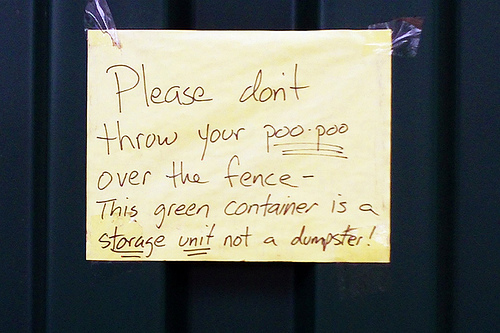 Please don't
throw your poo-poo
over the fence -
This green container is a
storage unit not a dumpster!